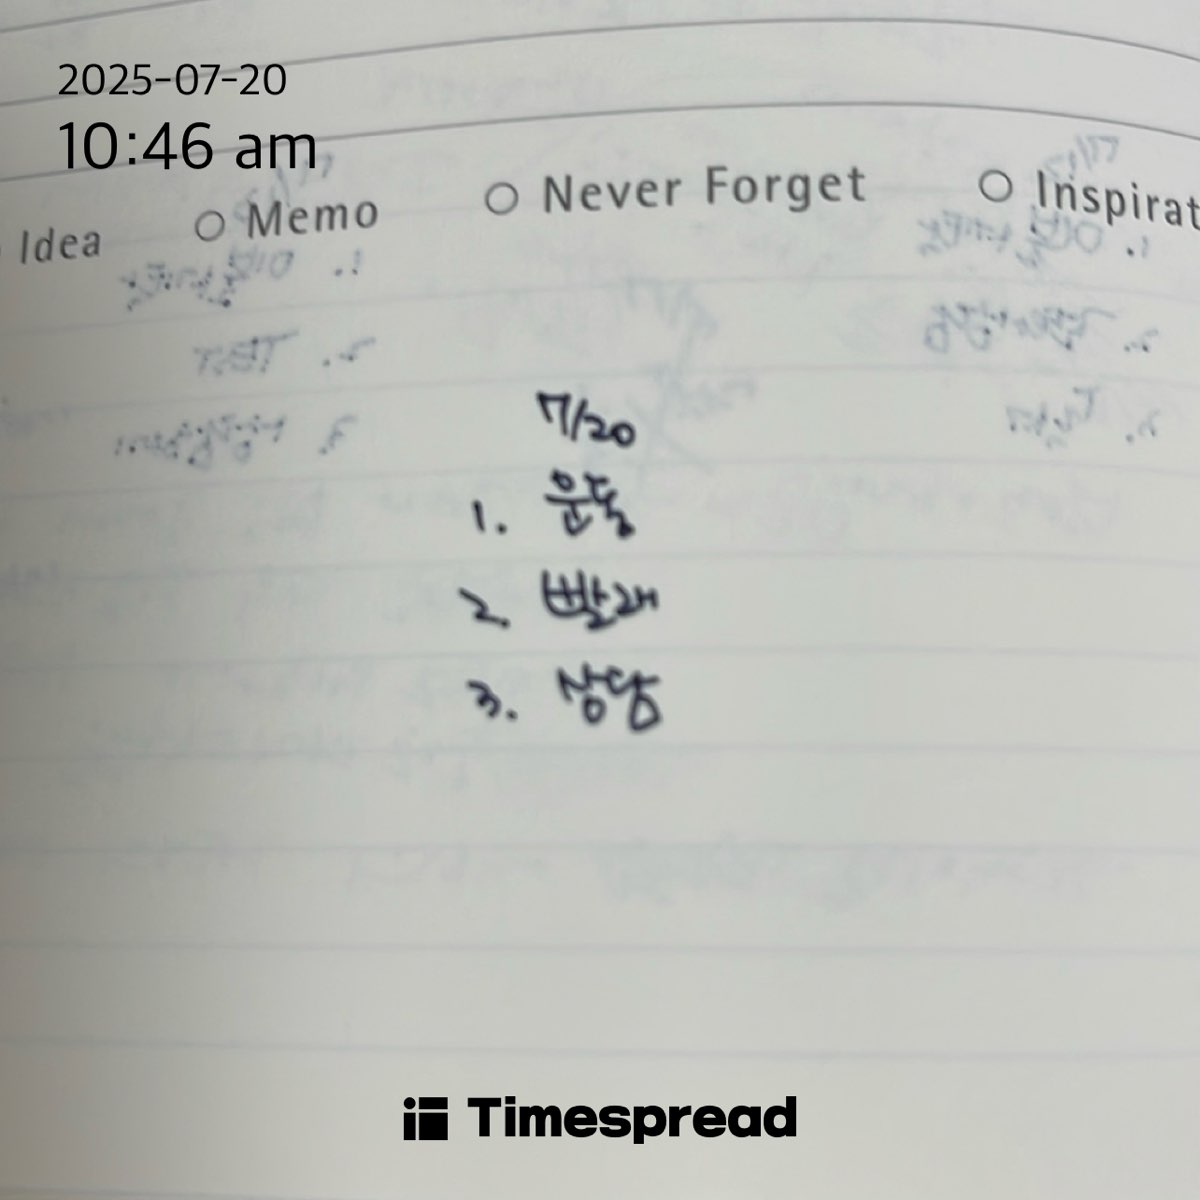 2025-07-20
10:46 am
Idea ○ Memo ○ Never Forget ○ Inspirat
7/20
1. 운동
2. 빨래
3. 상담
Timespread